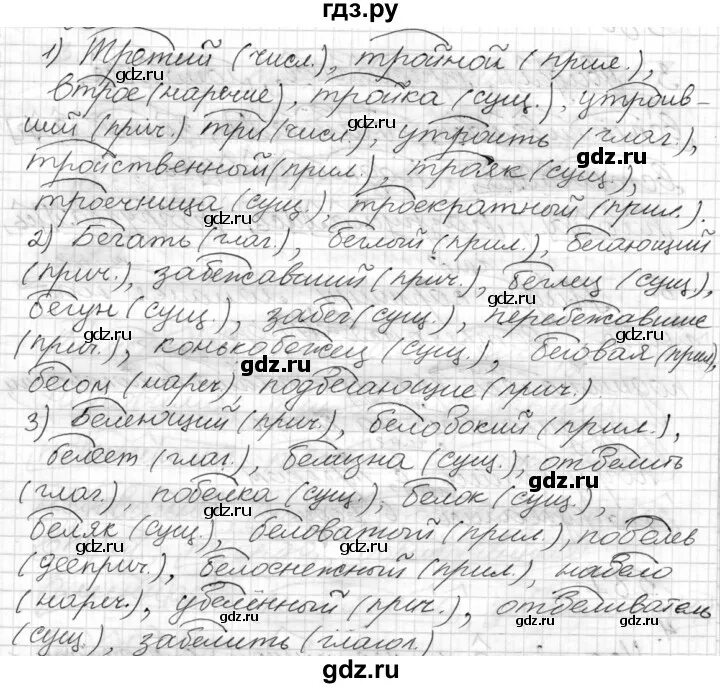 гдз.ру
1) Третий (числ.), тройной (прил.),
втрое (наречие), тройка (сущ.), утроив-
ший (прич.) три (числ.), утроить (глаг.),
тройственный (прил.), трояк (сущ.),
троечница (сущ.), троекратный (прил.).
2) Бегать (глаг.), беглый (прил.), бегающий
(прич.), забежавший (прич.), беглец (сущ.),
бегун (сущ.), забег (сущ.), перебежавшие
(прич.), конькобежец (сущ.), беговая (прил),
бегом (нареч.), подбегающие (прич.)
3) Белеющий (прич.), белобокий (прил.),
белеет (глаг.), белизна (сущ.), отбелить
(глаг.), побелка (сущ.), белок (сущ.),
беляк (сущ.), беловатый (прил.), побелев
(дееприч.), белоснежный (прил.), набело
(нареч.), убелённый (прич.), отбеливатель
(сущ.), забелить (глагол.)
gdz.ru